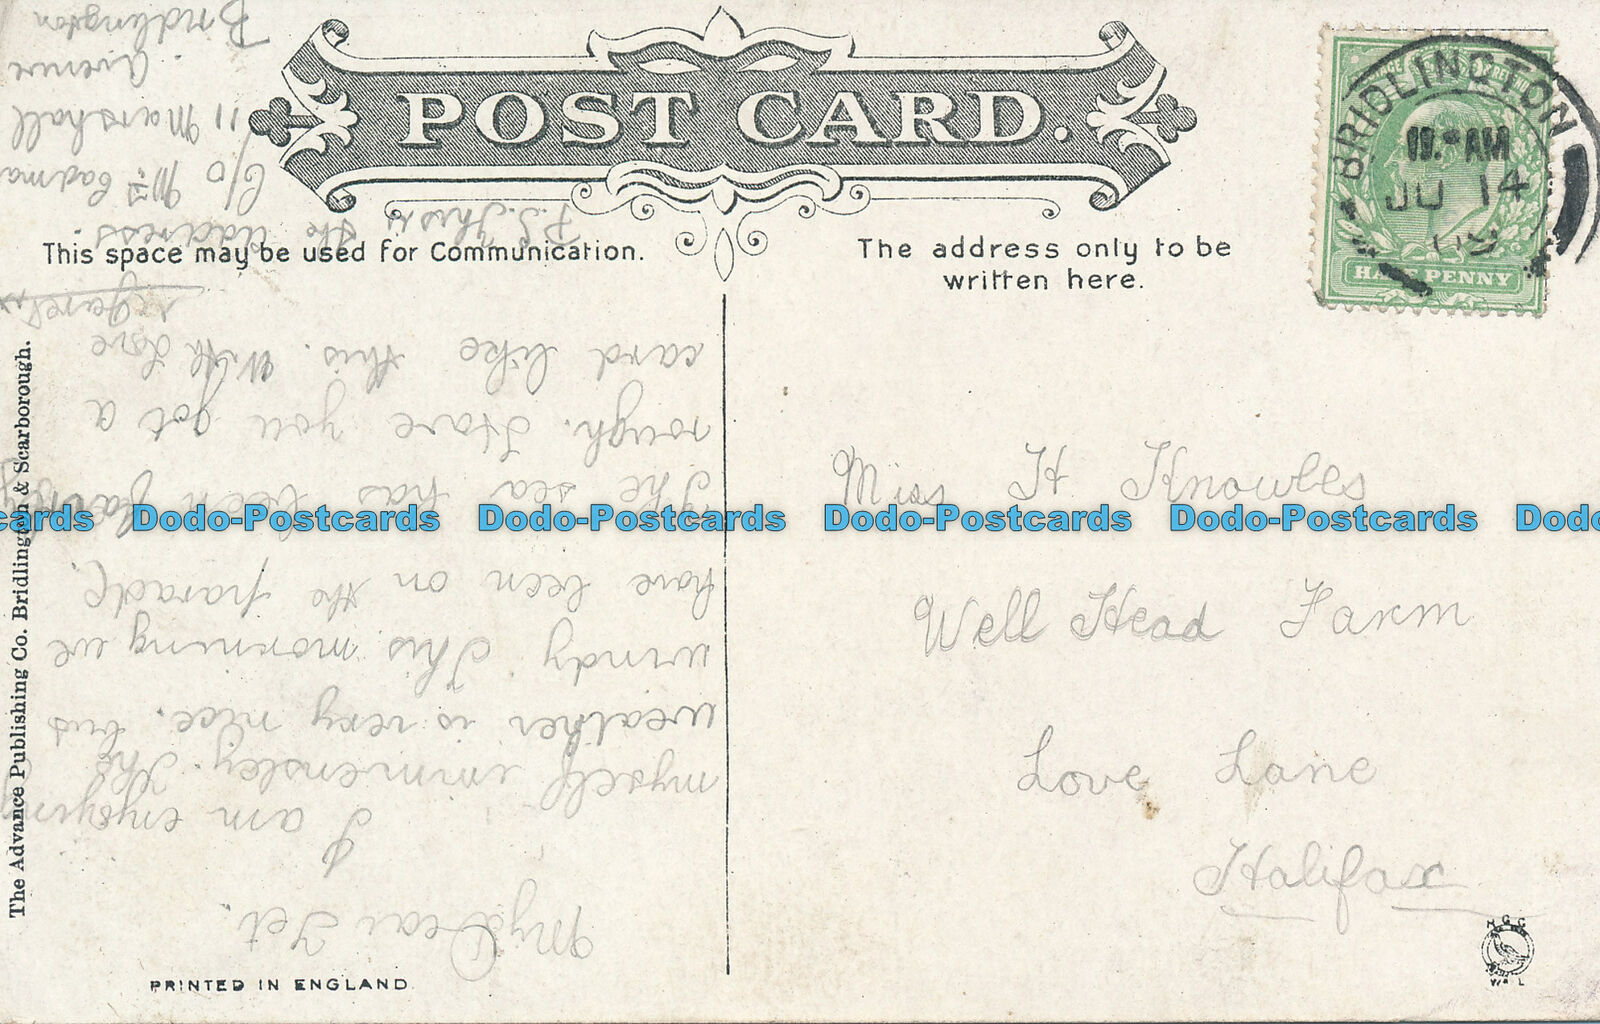 POST CARD.
This space may be used for Communication.
The address only to be
written here.
BRIDLINGTON
AM
JU 14
09
HALFPENNY
Miss H Knowles
Well Head Farm
Love Lane
Halifax
My Dear Jet.
I am enjoying
myself immensley. The
weather is very nice, but
windy. This morning we
have been on the parade.
The sea has been fairly
rough. Have you got a
card like this. With love
P.S. This is
the address.
C/O Mrs Cadma
11 Marshall
Avenue
Bridlington
The Advance Publishing Co. Bridlington & Scarborough.
PRINTED IN ENGLAND
cards Dodo-Postcards Dodo-Postcards Dodo-Postcards Dodo-Postcards Dodo